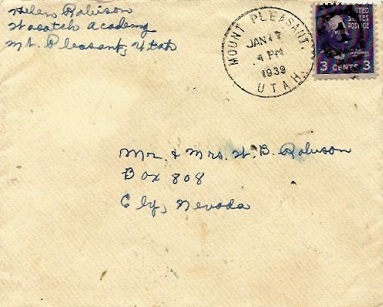 Helen Robison
Wasatch Academy
Mt. Pleasant, Utah
MOUNT PLEASANT.
JAN 17
4 PM
1939
UTAH.
UNITED
STATES
POSTAGE
3 CENTS 3
Mr. & Mrs. W. B. Robison
Box 808
Ely, Nevada